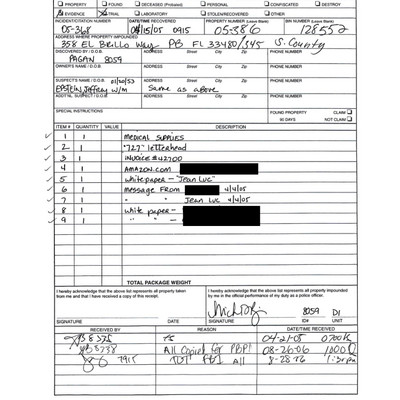 PROPERTY FOUND DECEASED (Probated) PERSONAL CONFISCATED DESTROY
EVIDENCE TRIAL LABORATORY STOLEN/RECOVERED OTHER
INCIDENT/CITATION NUMBER DATE/TIME RECOVERED PROPERTY NUMBER (Leave Blank) BIN NUMBER (Leave Blank)
05-368 04/15/05 0915 05-386 128552
ADDRESS WHERE PROPERTY IMPOUNDED Street City Zip
358 EL Brillo Way PB FL 33480/345 S. County
DISCOVERED BY / D.O.B. ADDRESS Street City Zip PHONE NUMBER
PAGAN 8059
OWNER'S NAME / D.O.B. ADDRESS Street City Zip PHONE NUMBER
SUSPECT'S NAME / D.O.B. 01/20/53 ADDRESS Street City Zip PHONE NUMBER
EPSTEIN, Jeffrey w/m Same as above
ADDT'NL. SUSPECT / D.O.B. ADDRESS Street City Zip PHONE NUMBER
SPECIAL INSTRUCTIONS
FOUND PROPERTY CLAIM
90 DAYS NOT CLAIM
ITEM # QUANTITY VALUE DESCRIPTION
1 1 MEDICAL SUPPLIES
2 1 "727" letterhead
3 1 INVOICE #42700
4 1 AMAZON.COM
5 1 white paper - "Jean Luc"
6 1 MESSAGE FROM 4/4/05
7 1 " " Jean Luc 4/4/05
8 1 white paper -
9 1 " "
TOTAL PACKAGE WEIGHT
I hereby acknowledge that the above list represents all property taken from me and that I have received a copy of this receipt.
I hereby acknowledge that the above list represents all property impounded by me in the official performance of my duty as a police officer.
8059 D1
SIGNATURE SIGNATURE ID# UNIT
RECEIVED BY REASON DATE/TIME RECEIVED
04-21-05 0700h
All Copied for PBPD 08-26-06 1000
7915 TOT FBI All 8-28-06